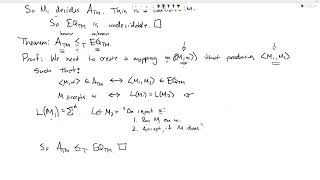 So M₁ decides A_TM. This is a
So EQ_TM is undecidable. □
know know
Theorem: A_TM ≤_T EQ_TM.
Proof: We need to create a mapping ⟨M,w⟩ that produces ⟨M₁, M₂⟩
Such that:
⟨M,w⟩ ∈ A_TM ⟺ ⟨M₁, M₂⟩ ∈ EQ_TM
M accepts w ⟺ L(M₁) = L(M₂)
L(M₁) = Σ*. Let M₂ = "On input x:
1. Run M on w.
2. Accept if M does"
So A_TM ≤_T EQ_TM □